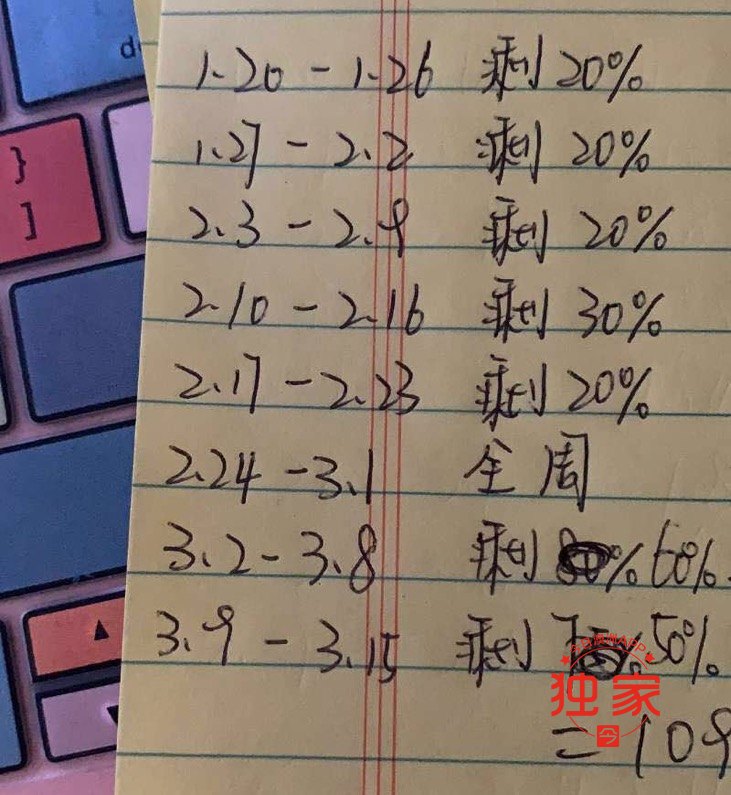 d
}
]
1.20 - 1.26 剩 20%
1.27 - 2.2 剩 20%
2.3 - 2.9 剩 20%
2.10 - 2.16 剩 30%
2.17 - 2.23 剩 20%
2.24 - 3.1 全周
3.2 - 3.8 剩 % 60%.
3.9 - 3.15 剩 50%.
独家
今
= 109